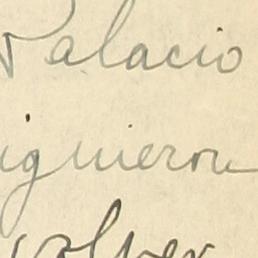 Palacio
iguieron
volver